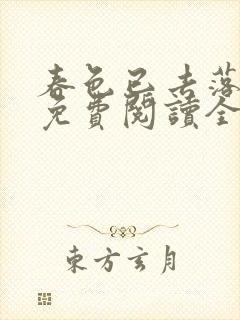 春色已去落
免費閱讀全
東方玄月